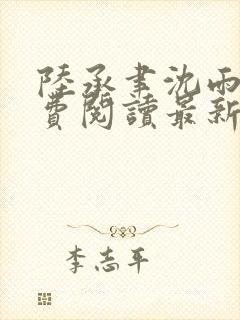 陸承聿沈雨
費閱讀最新
李志平